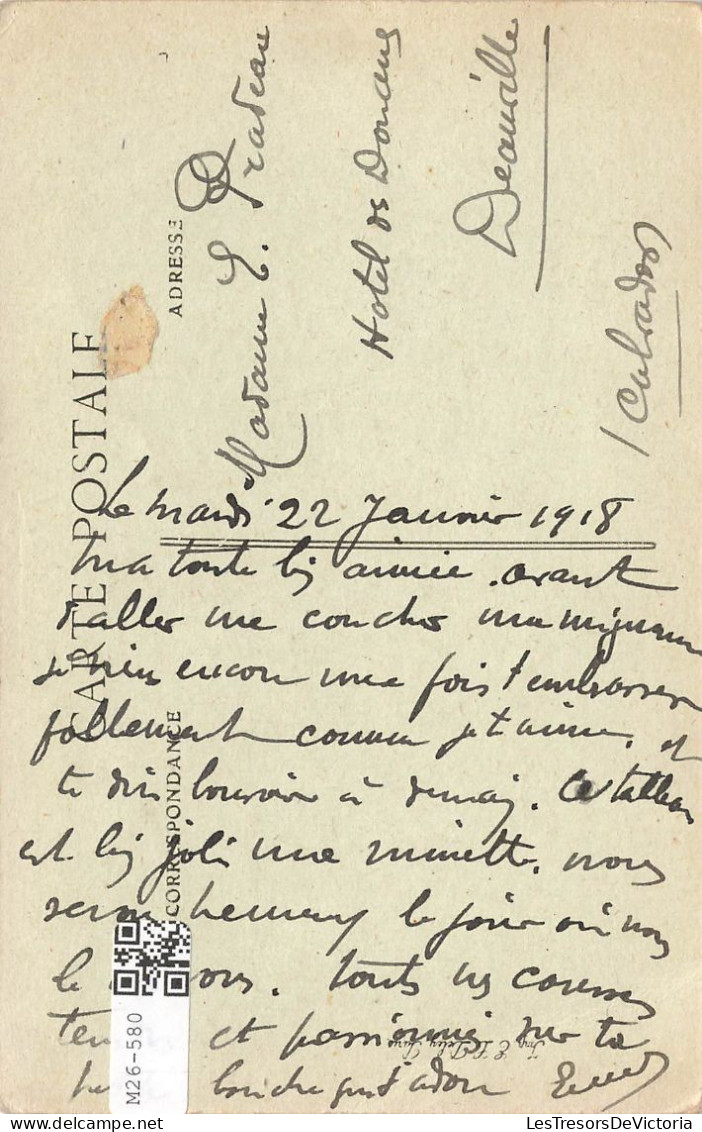 CARTE POSTALE
ADRESSE
Madame E. Pradeau
Hotel de Douane
Deauville
(Calvados)
CORRESPONDANCE
Le mardi 22 Janvier 1918
Ma toute bien aimée. avant
d'aller me coucher ma mignonne
je viens encore une fois t'embrasser
follement comme je t'aime. et
te dire bonsoir à demain. Ce tableau
est bien joli ma minette. nous
serons heureux le jour où nous
le ... Toutes mes caresses
et passionnées sur ta
bouche que j'adore
Imp. E. Le Deley, Paris
M26-580
LesTresorsDeVictoria.com